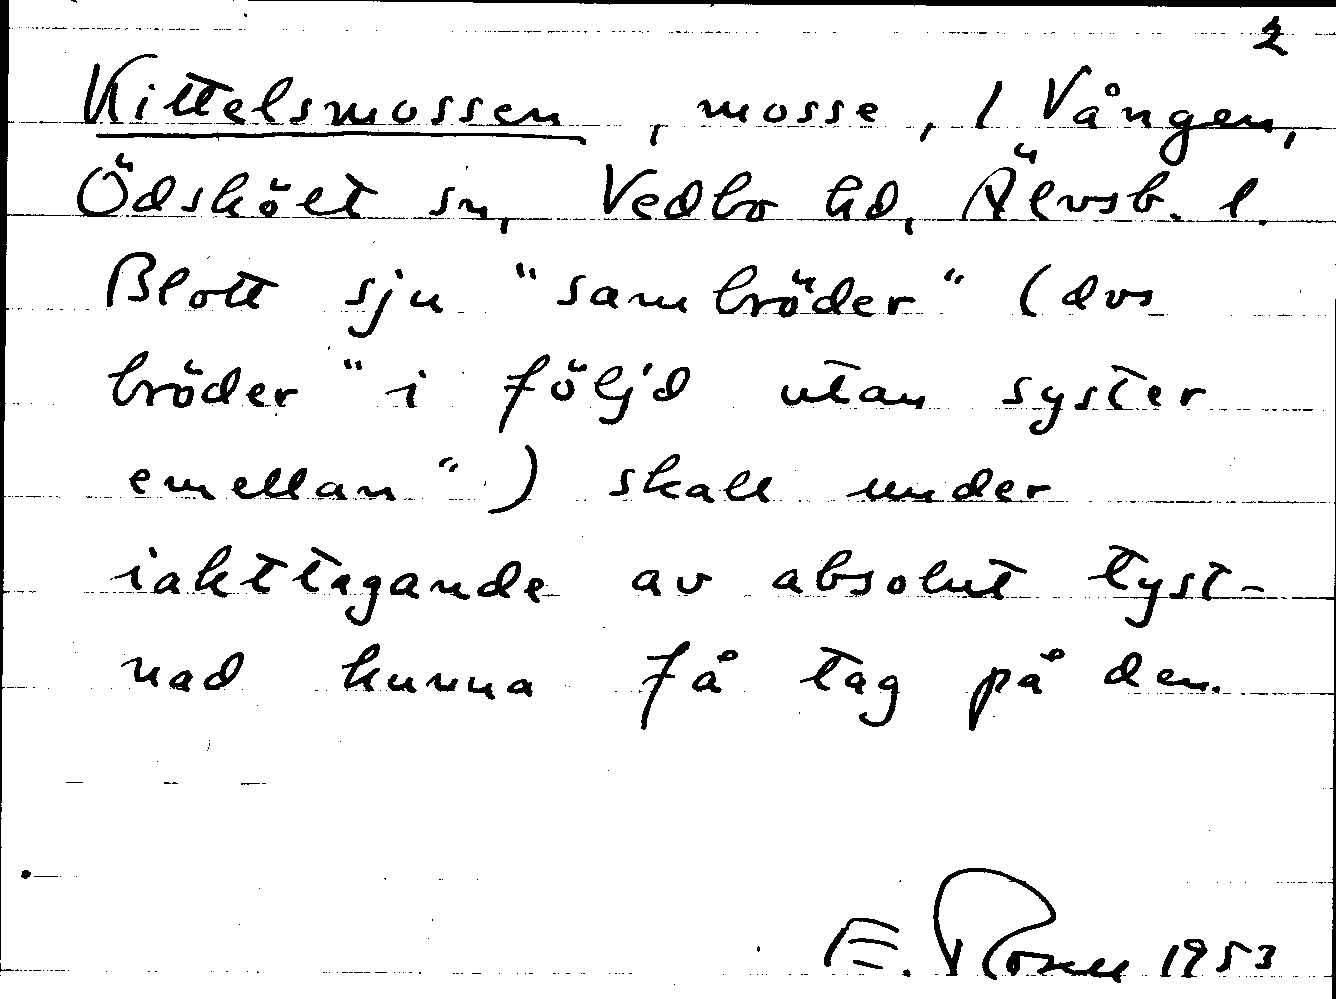 2
Kittelsmossen, mosse, / Vången,
Ödskölt sn, Vedbo hd, Älvsb. l.
Blott sju "sambröder" (dvs
bröder "i följd utan syster
emellan") skall under
iakttagande av absolut tyst-
nad kunna få tag på den.
E. Rosell 1953